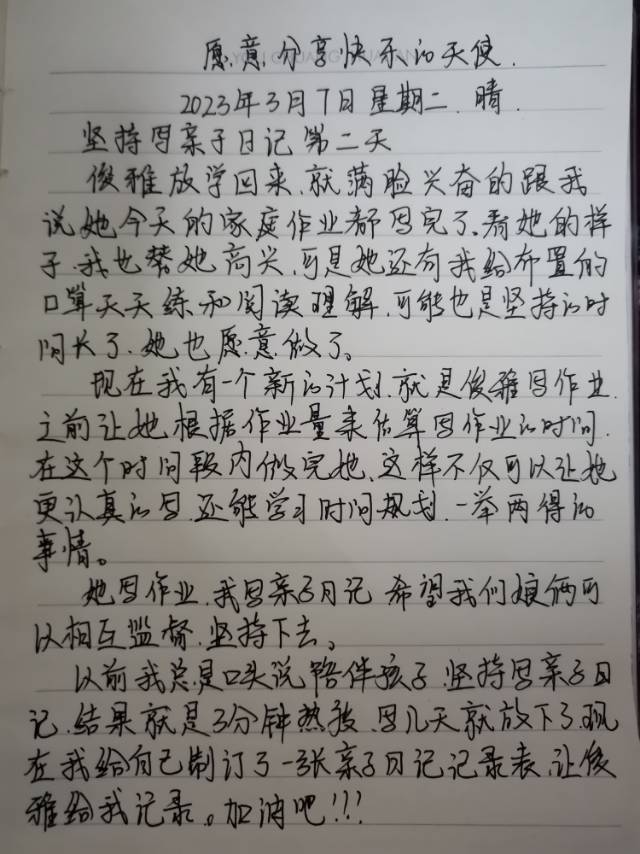 愿意分享快乐的天使.
2023年3月7日星期二.晴.
坚持写亲子日记第二天
俊雅放学回来,就满脸兴奋的跟我
说她今天的家庭作业都写完了.看她的样
子.我也替她高兴,可是她还有我给布置的
口算天天练和阅读理解,可能也是坚持的时
间长了.她也愿意做了。
现在我有一个新的计划.就是俊雅写作业.
之前让她根据作业量来估算写作业的时间.
在这个时间段内做完她、这样不仅可以让她
更认真的写.还能学习时间规划.一举两得的
事情。
她写作业.我写亲子日记 希望我们娘俩可
以相互监督.坚持下去。
以前我总是口头说陪伴孩子.坚持写亲子日
记.结果就是3分钟热度.写几天就放下了.现
在我给自己制订了一张亲子日记记录表.让俊
雅给我记录。加油吧!!!